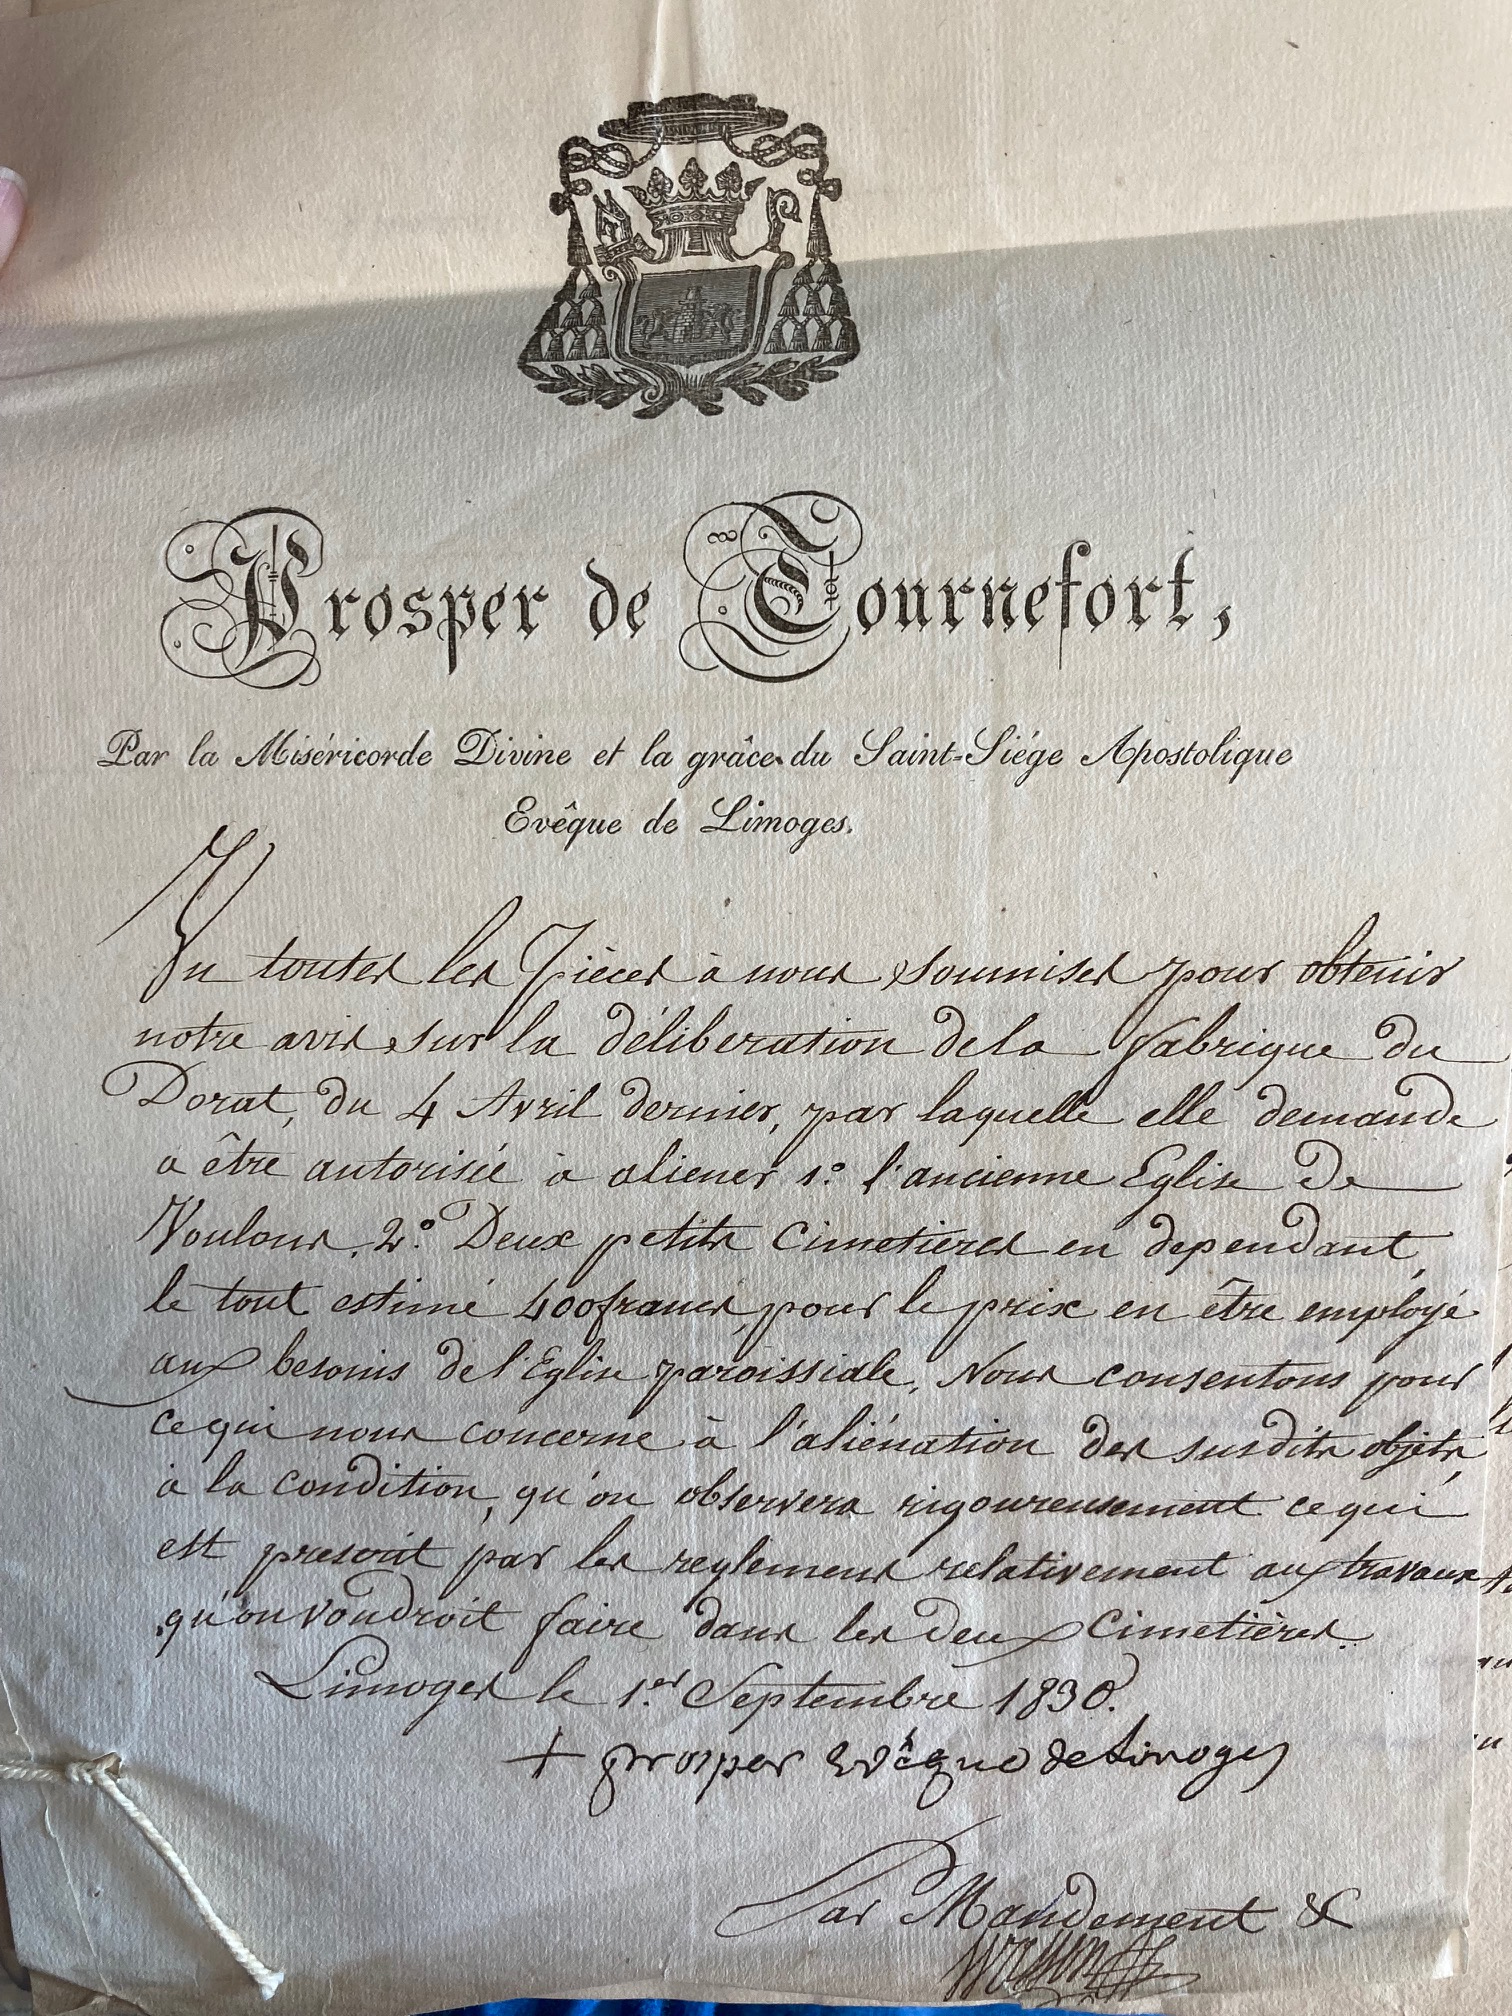 Prosper de Tournefort,
Par la Miséricorde Divine et la grâce du Saint-Siége Apostolique
Evêque de Limoges.
Vu toutes les Pièces à nous soumises pour obtenir
notre avis sur la déliberation de la fabrique du
Dorat, du 4 Avril dernier, par laquelle elle demande
a être autorisée à aliener 1.° l'ancienne Eglise de
Voulons, 2.° Deux petits Cimetières en dependant,
le tout estimé 400 francs, pour le prix en être employé
aux besoins de l'Eglise paroissiale, Nous consentons pour
ce qui nous concerne à l'aliénation des susdits objets,
à la condition, qu'on observera rigoureusement ce qui
est prescrit par les reglemens relativement aux travaux
qu'on voudroit faire dans les deux Cimetières.
Limoges le 1.er Septembre 1830.
+ prosper Evêque de Limoges
Par Mandement &